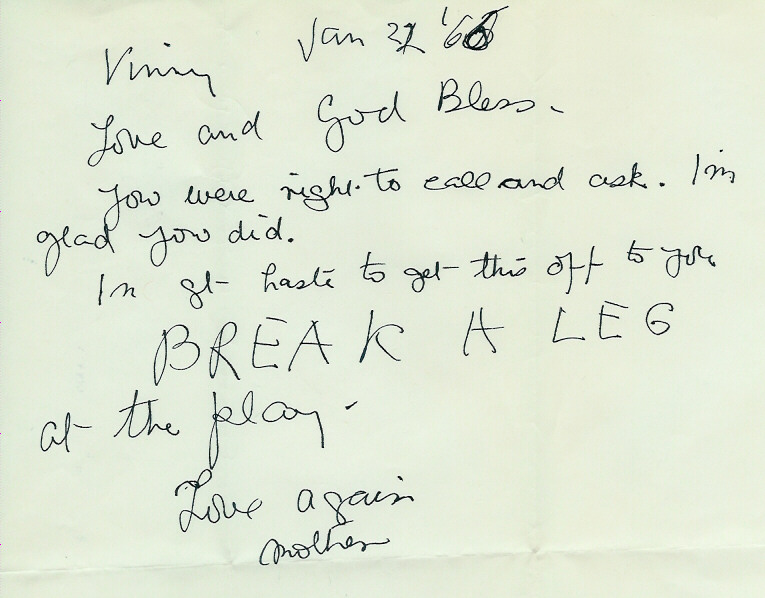 Jan 21 '66
Vinny
Love and God Bless -
You were right to call and ask. I'm
glad you did.
In gt haste to get this off to you
BREAK A LEG
at the play -
Love again
Mother